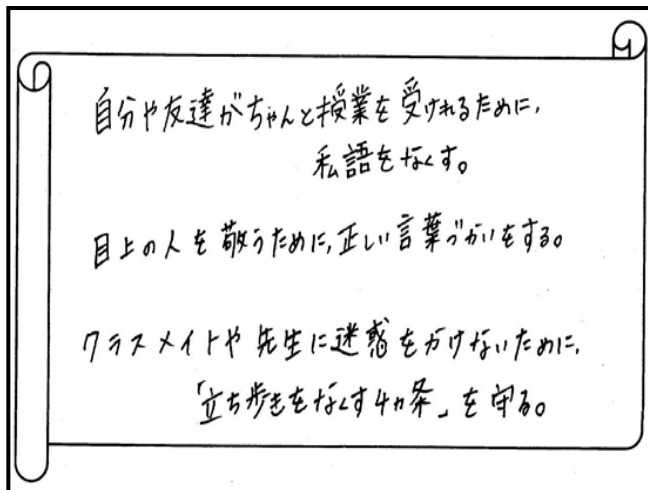 自分や友達がちゃんと授業を受けれるために、
私語をなくす。
目上の人を敬うために、正しい言葉づかいをする。
クラスメイトや先生に迷惑をかけないために、
「立ち歩きをなくす4カ条」を守る。